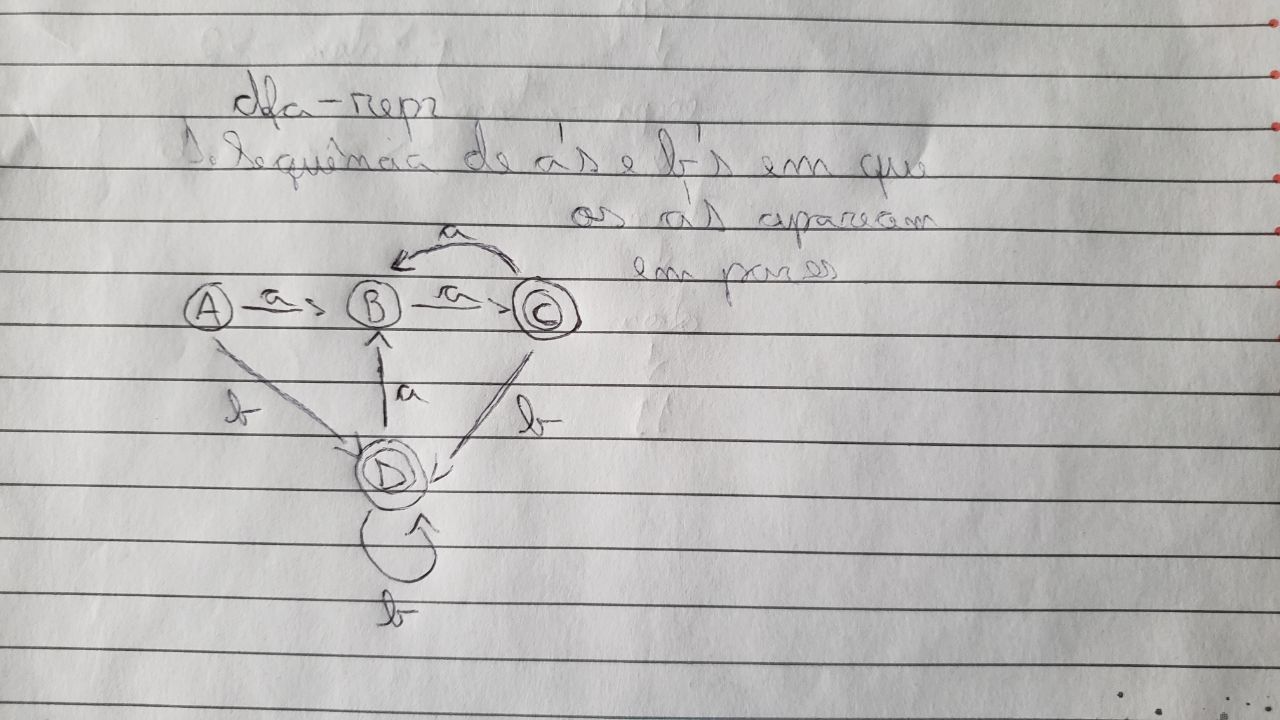 dfa-repr
1. Sequência de a's e b's em que
os a's apareçam
em pares
a
A a B a C
b a b
D
b